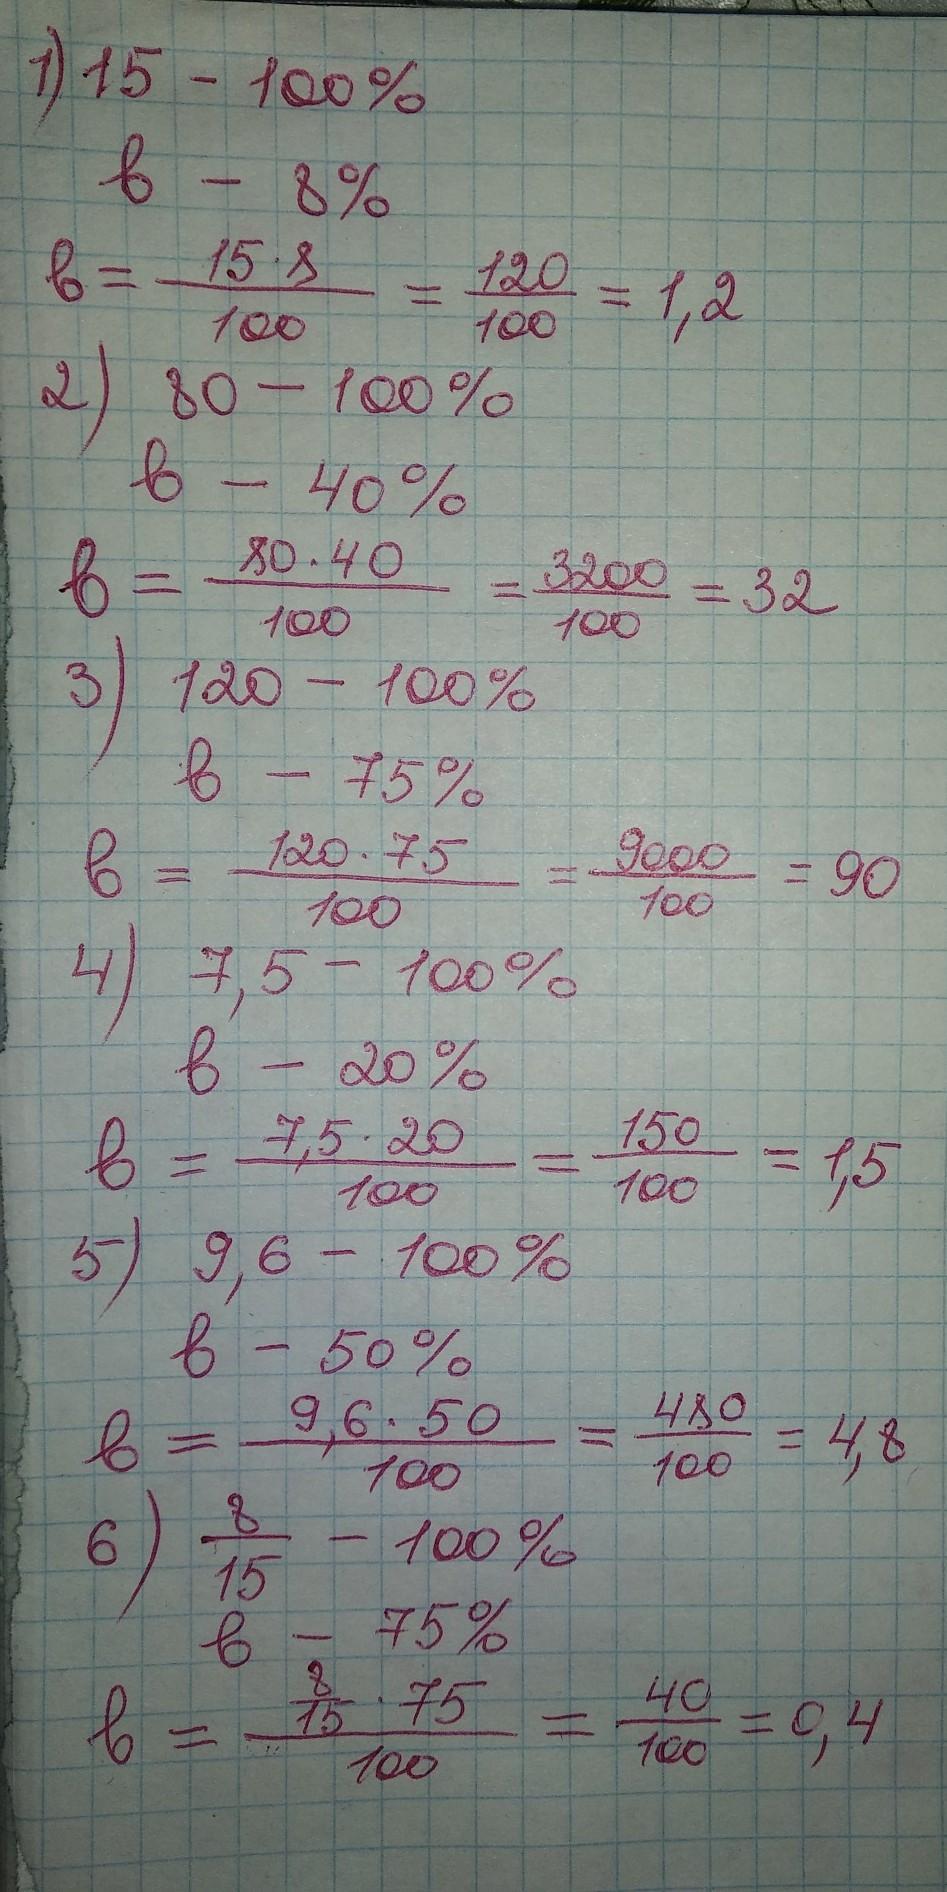 1) 15 - 100%
в - 8%
в = 15·8/100 = 120/100 = 1,2
2) 80 - 100%
в - 40%
в = 80·40/100 = 3200/100 = 32
3) 120 - 100%
в - 75%
в = 120·75/100 = 9000/100 = 90
4) 7,5 - 100%
в - 20%
в = 7,5·20/100 = 150/100 = 1,5
5) 9,6 - 100%
в - 50%
в = 9,6·50/100 = 480/100 = 4,8
6) 8/15 - 100%
в - 75%
в = 8/15·75/100 = 40/100 = 0,4